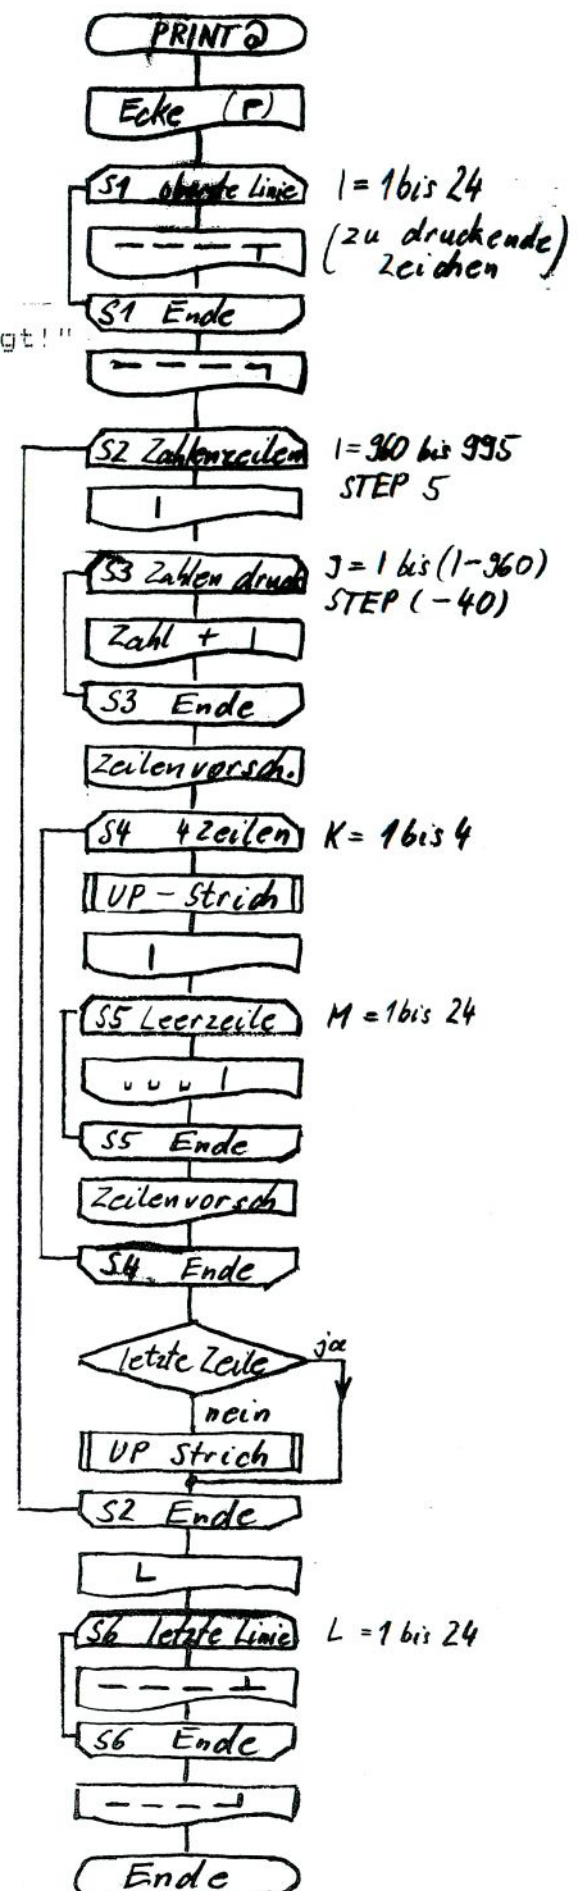 PRINT @
Ecke (┌)
S1 oberste Linie
I = 1 bis 24
(zu druckende)
Zeichen
— — — — ┬
S1 Ende
gt!"
— — — — ┐
S2 Zahlenzeilen
I = 960 bis 995
STEP 5
|
S3 Zahlen druck
J = I bis (I-960)
STEP (-40)
Zahl + |
S3 Ende
Zeilenvorsch.
S4 4 Zeilen
K = 1 bis 4
UP - Strich
|
S5 Leerzeile
M = 1 bis 24
␣ ␣ ␣ |
S5 Ende
Zeilenvorsch
S4 Ende
letzte Zeile
ja
nein
UP Strich
S2 Ende
└
S6 letzte Linie
L = 1 bis 24
— — — ┴
S6 Ende
— — — — ┘
Ende